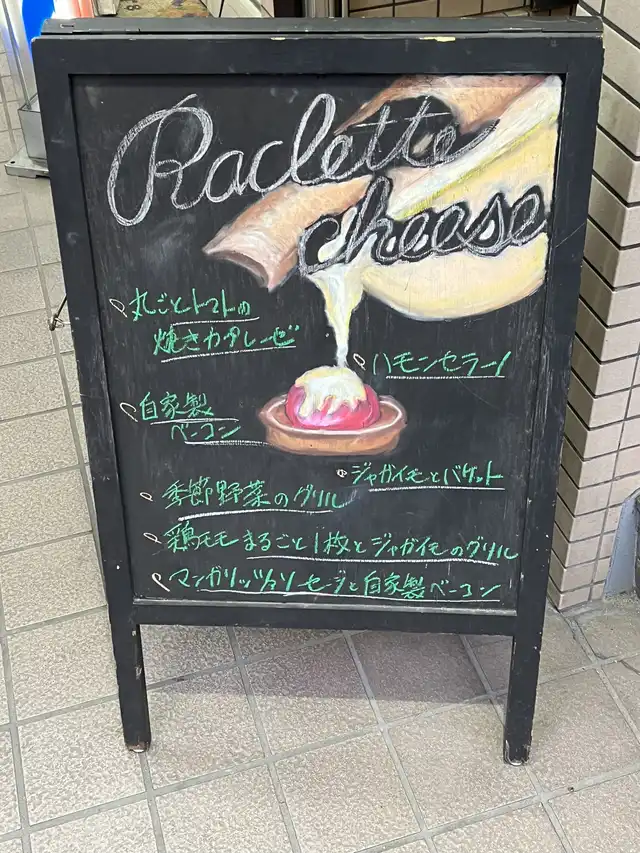 Raclette
cheese
丸ごとトマトの
焼きカプレーゼ
ハモンセラーノ
自家製
ベーコン
ジャガイモとバケット
季節野菜のグリル
鶏モモまるごと1枚とジャガイモのグリル
マンガリッツァソセージと自家製ベーコン